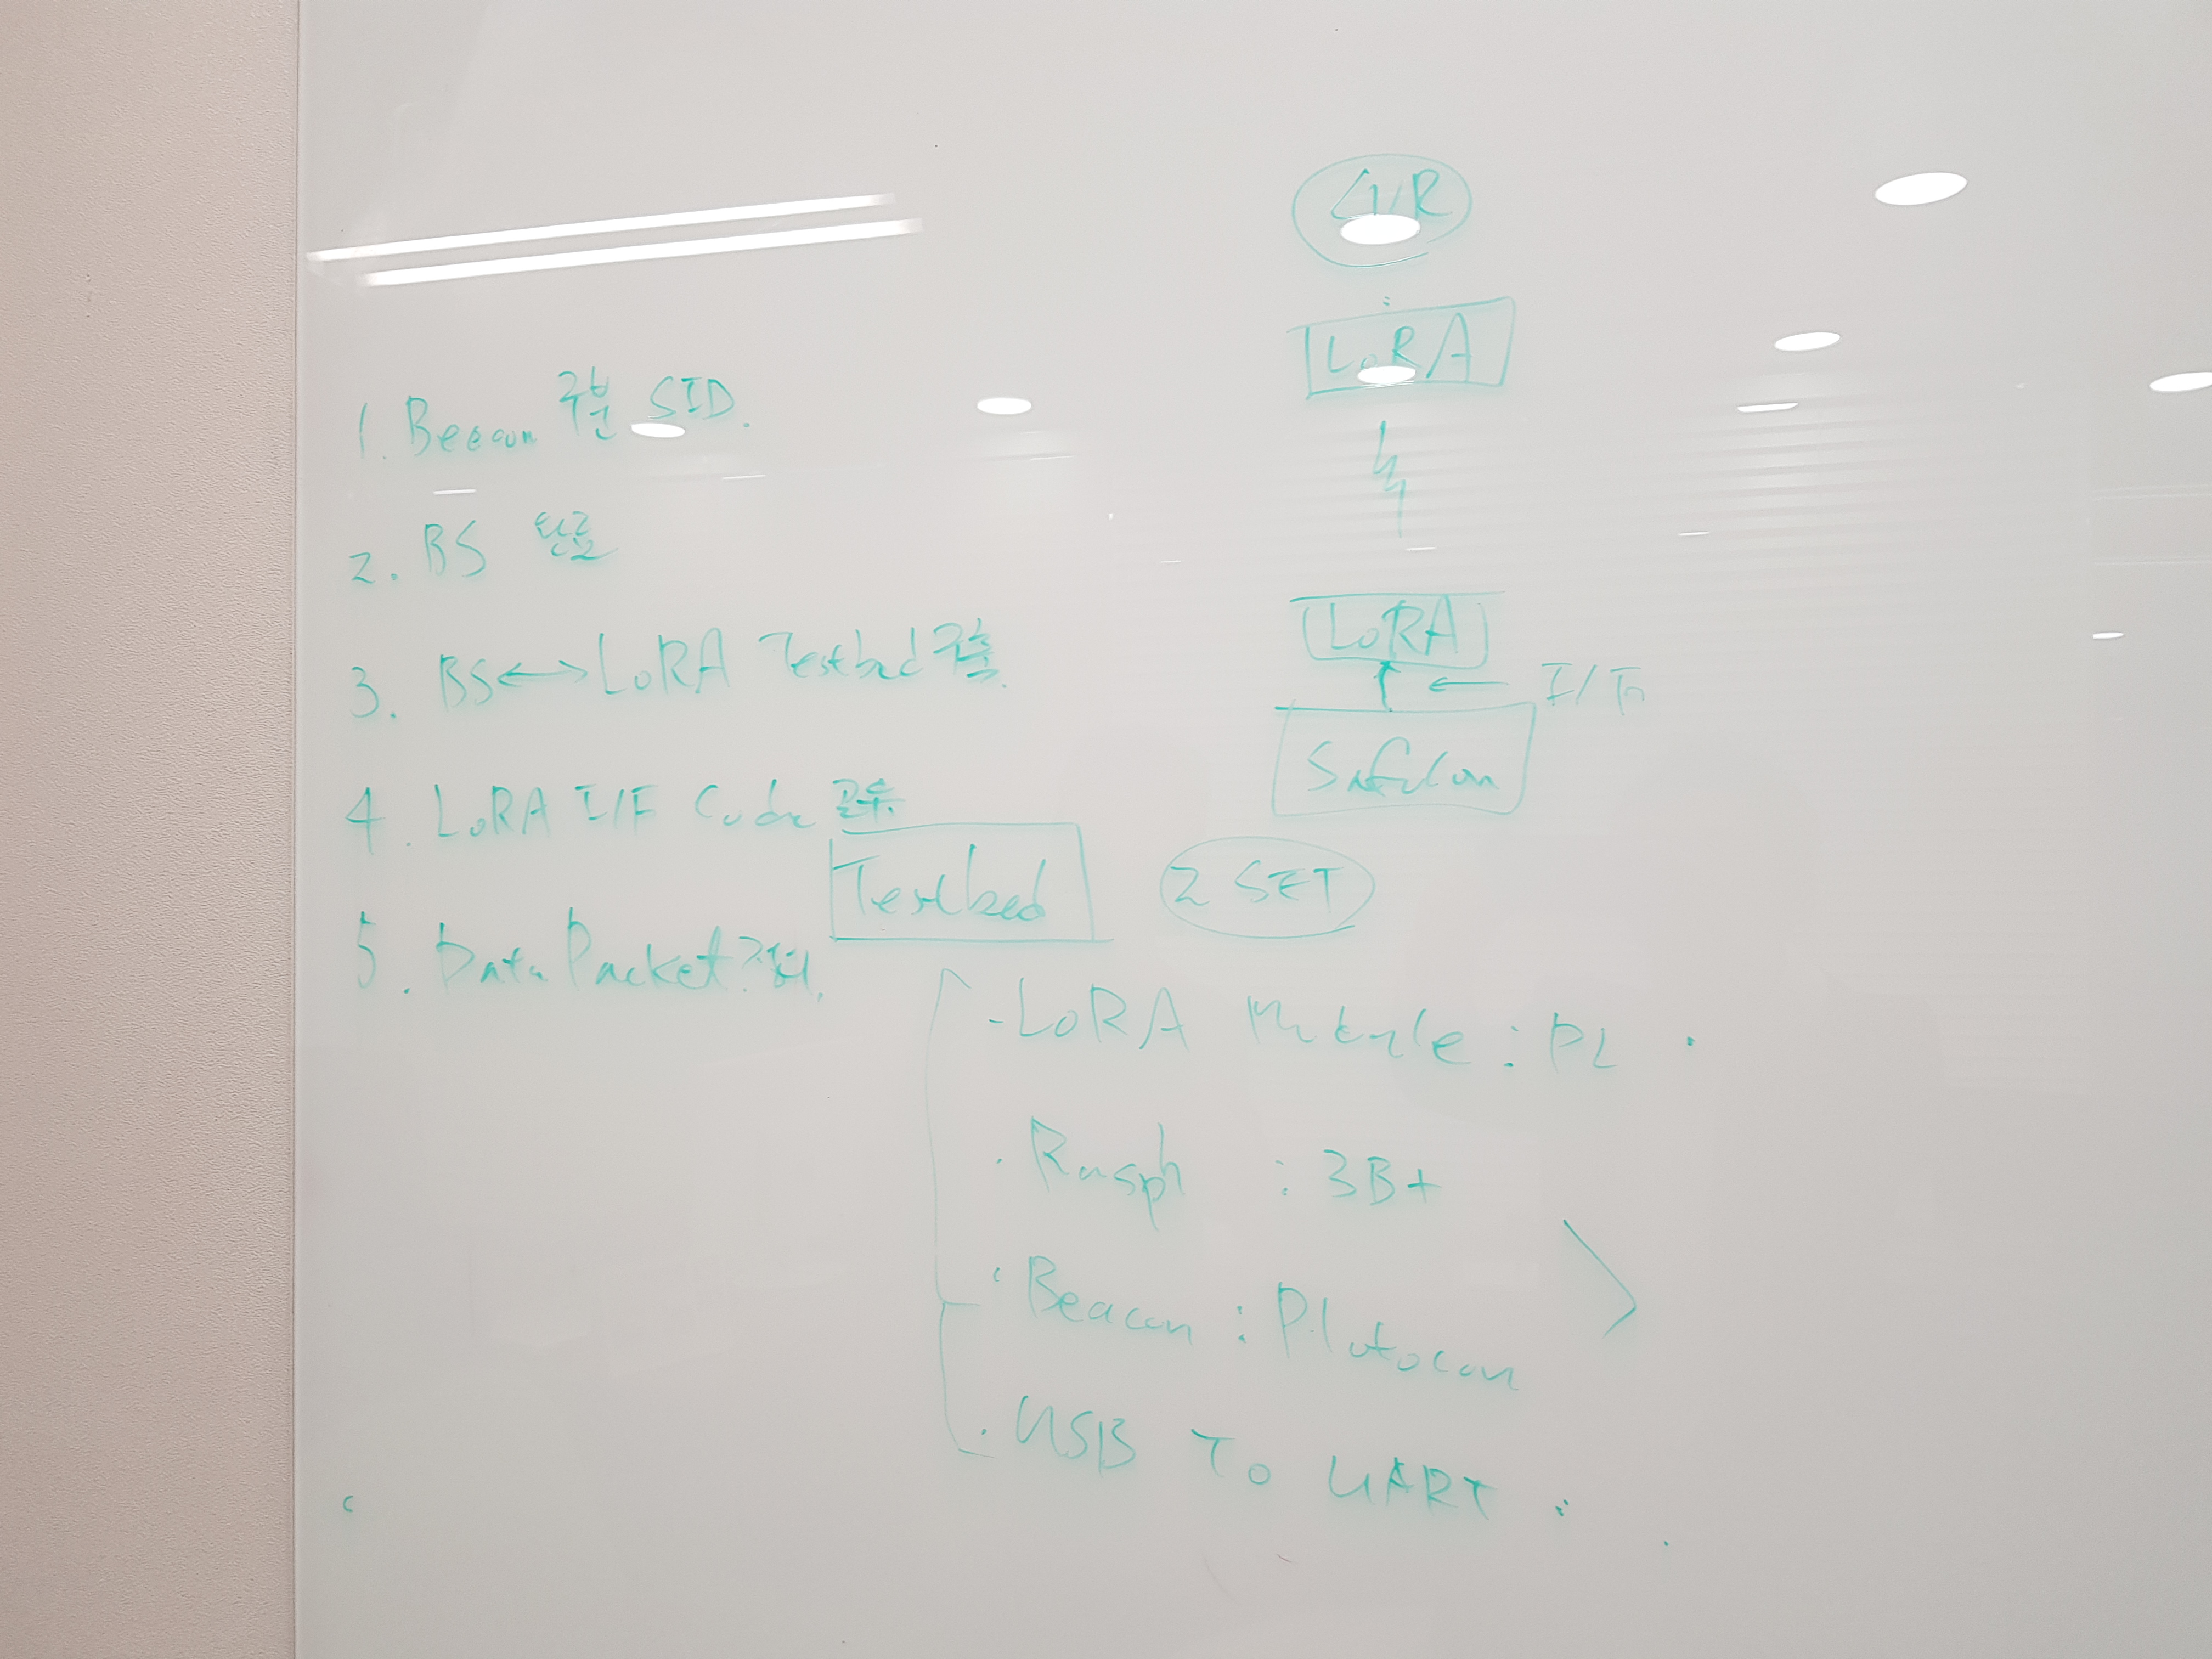 1. Beacon 구분 SID.
2. BS
3. BS ↔ LoRA Testbed 구축.
4. LoRA I/F Code
5. Data Packet
LoRA
LoRA
I/F
Testbed
2 SET
- LoRA Module : PL
· Raspb : 3B+
· Beacon : Plutocon
· USB TO UART :